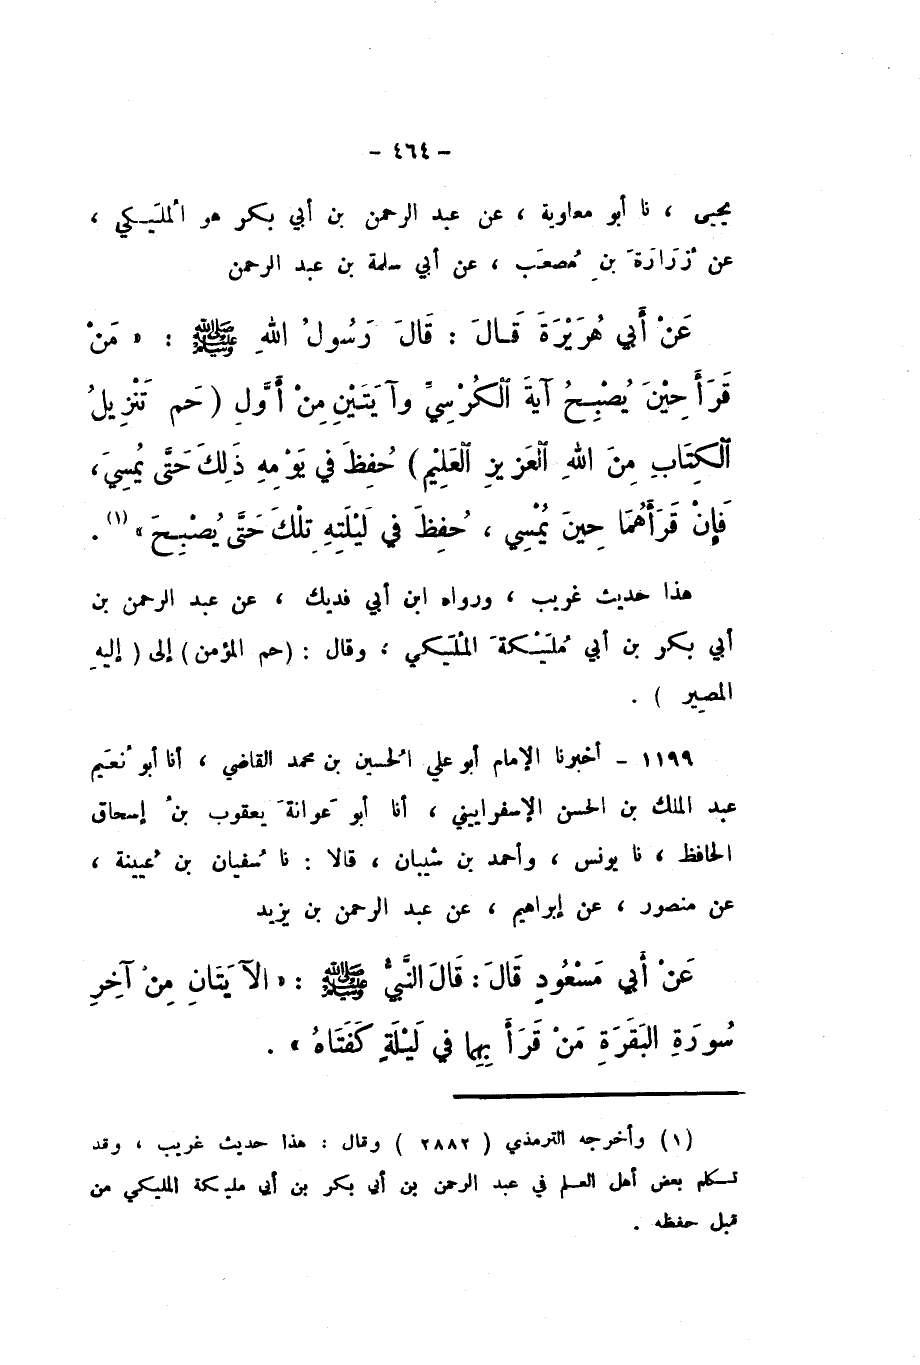 - ٤٦٤ -
يحيى ، نا أبو معاوية ، عن عبد الرحمن بن أبي بكر هو المُلَيكي ،
عن زُرَارَةَ بنِ مُصعَب ، عن أبي سلمة بن عبد الرحمن
عَنْ أَبي هُرَيْرَةَ قَالَ : قَالَ رَسُولُ اللهِ ﷺ : « مَنْ
قَرَأَ حِيْنَ يُصْبِحُ آيَةَ ٱلْكُرْسِيِّ وآيَتَيْنِ مِنْ أَوَّلِ ( حَم تَنْزِيلُ
ٱلْكِتَابِ مِنَ اللهِ ٱلْعَزِيزِ ٱلْعَلِيْمِ ) حُفِظَ في يَوْمِهِ ذَلِكَ حَتَّى يُمْسِيَ ،
فَإِنْ قَرَأَهُمَا حِينَ يُمْسِي ، حُفِظَ في لَيْلَتِهِ تِلْكَ حَتَّى يُصْبِحَ » (١) .
هذا حديث غريب ، ورواه ابن أبي فديك ، عن عبد الرحمن بن
أبي بكر بن أبي مُلَيْكةَ المُلَيكي ، وقال : ( حم المؤمن ) إلى ( إليهِ
المصير ) .
١١٩٩ - أخبرنا الإمام أبو علي الحُسين بن محمد القاضي ، أنا أبو نُعَيم
عبد الملك بن الحسن الإسفراييني ، أنا أبو عَوانةَ يعقوب بنُ إسحاق
الحافظ ، نا يونس ، وأحمد بن شيبان ، قالا : نا سُفيان بن عُيينة ،
عن منصور ، عن إبراهيم ، عن عبد الرحمن بن يزيد
عَنْ أَبي مَسْعُودٍ قَالَ : قَالَ النَّبيُّ ﷺ : « الآيَتَانِ مِنْ آخِرِ
سُورَةِ البَقَرَةِ مَنْ قَرَأَ بِهِما في لَيْلَةٍ كَفَتَاهُ » .
(١) وأخرجه الترمذي ( ٢٨٨٢ ) وقال : هذا حديث غريب ، وقد
تكلم بعض أهل العلم في عبد الرحمن بن أبي بكر بن أبي مليكة المليكي من
قبل حفظه .